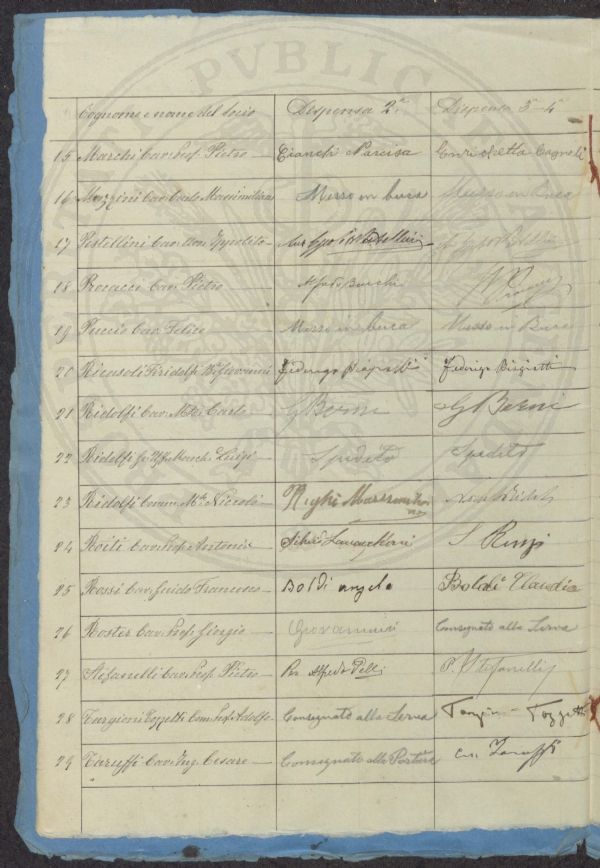 Cognome e nome del Socio Dispensa 2ª. Dispensa 3ª-4ª
15 Marchi Cav. Prof. Pietro Cianchi Narcisa Enrichetta Cagnoli
16 Mazzini Cav. Conte Massimiliano Messo in buca Messo in Buca
17 Pestellini Cav. Avv. Ippolito Ippolito Pestellini Ippolito Pestellini
18 Procacci Cav. Pietro Alfredo Bianchi P.
19 Puccio Cav. Felice Messo in buca Messo in Buca
20 Ricasoli Firidolfi Bne Giovanni Federigo Bigiotti Federigo Bigiotti
21 Ridolfi Cav. Mse. Carlo G Berni G Berni
22 Ridolfi Luigi Spedito Spedito
23 Ridolfi Comm. Mse Niccolò Righi Massimiliano
24 Roiti Cav. Prof. Antonio Silvio S. Renzi
25 Rossi Cav. Guido Francesco Boldi angelo Boldi Claudia
26 Roster Cav. Prof. Giorgio Giovannini Consegnato alla Serva
27 Stefanelli Cav. Prof. Pietro Per Alfredo Pelli P. Stefanelli
28 Targioni Tozzetti Com. Prof. Adolfo Consegnato alla Serva Targioni - Tozzetti
29 Taruffi Cav. Ing. Cesare Consegnato alla Portiera Ces. Taruffi